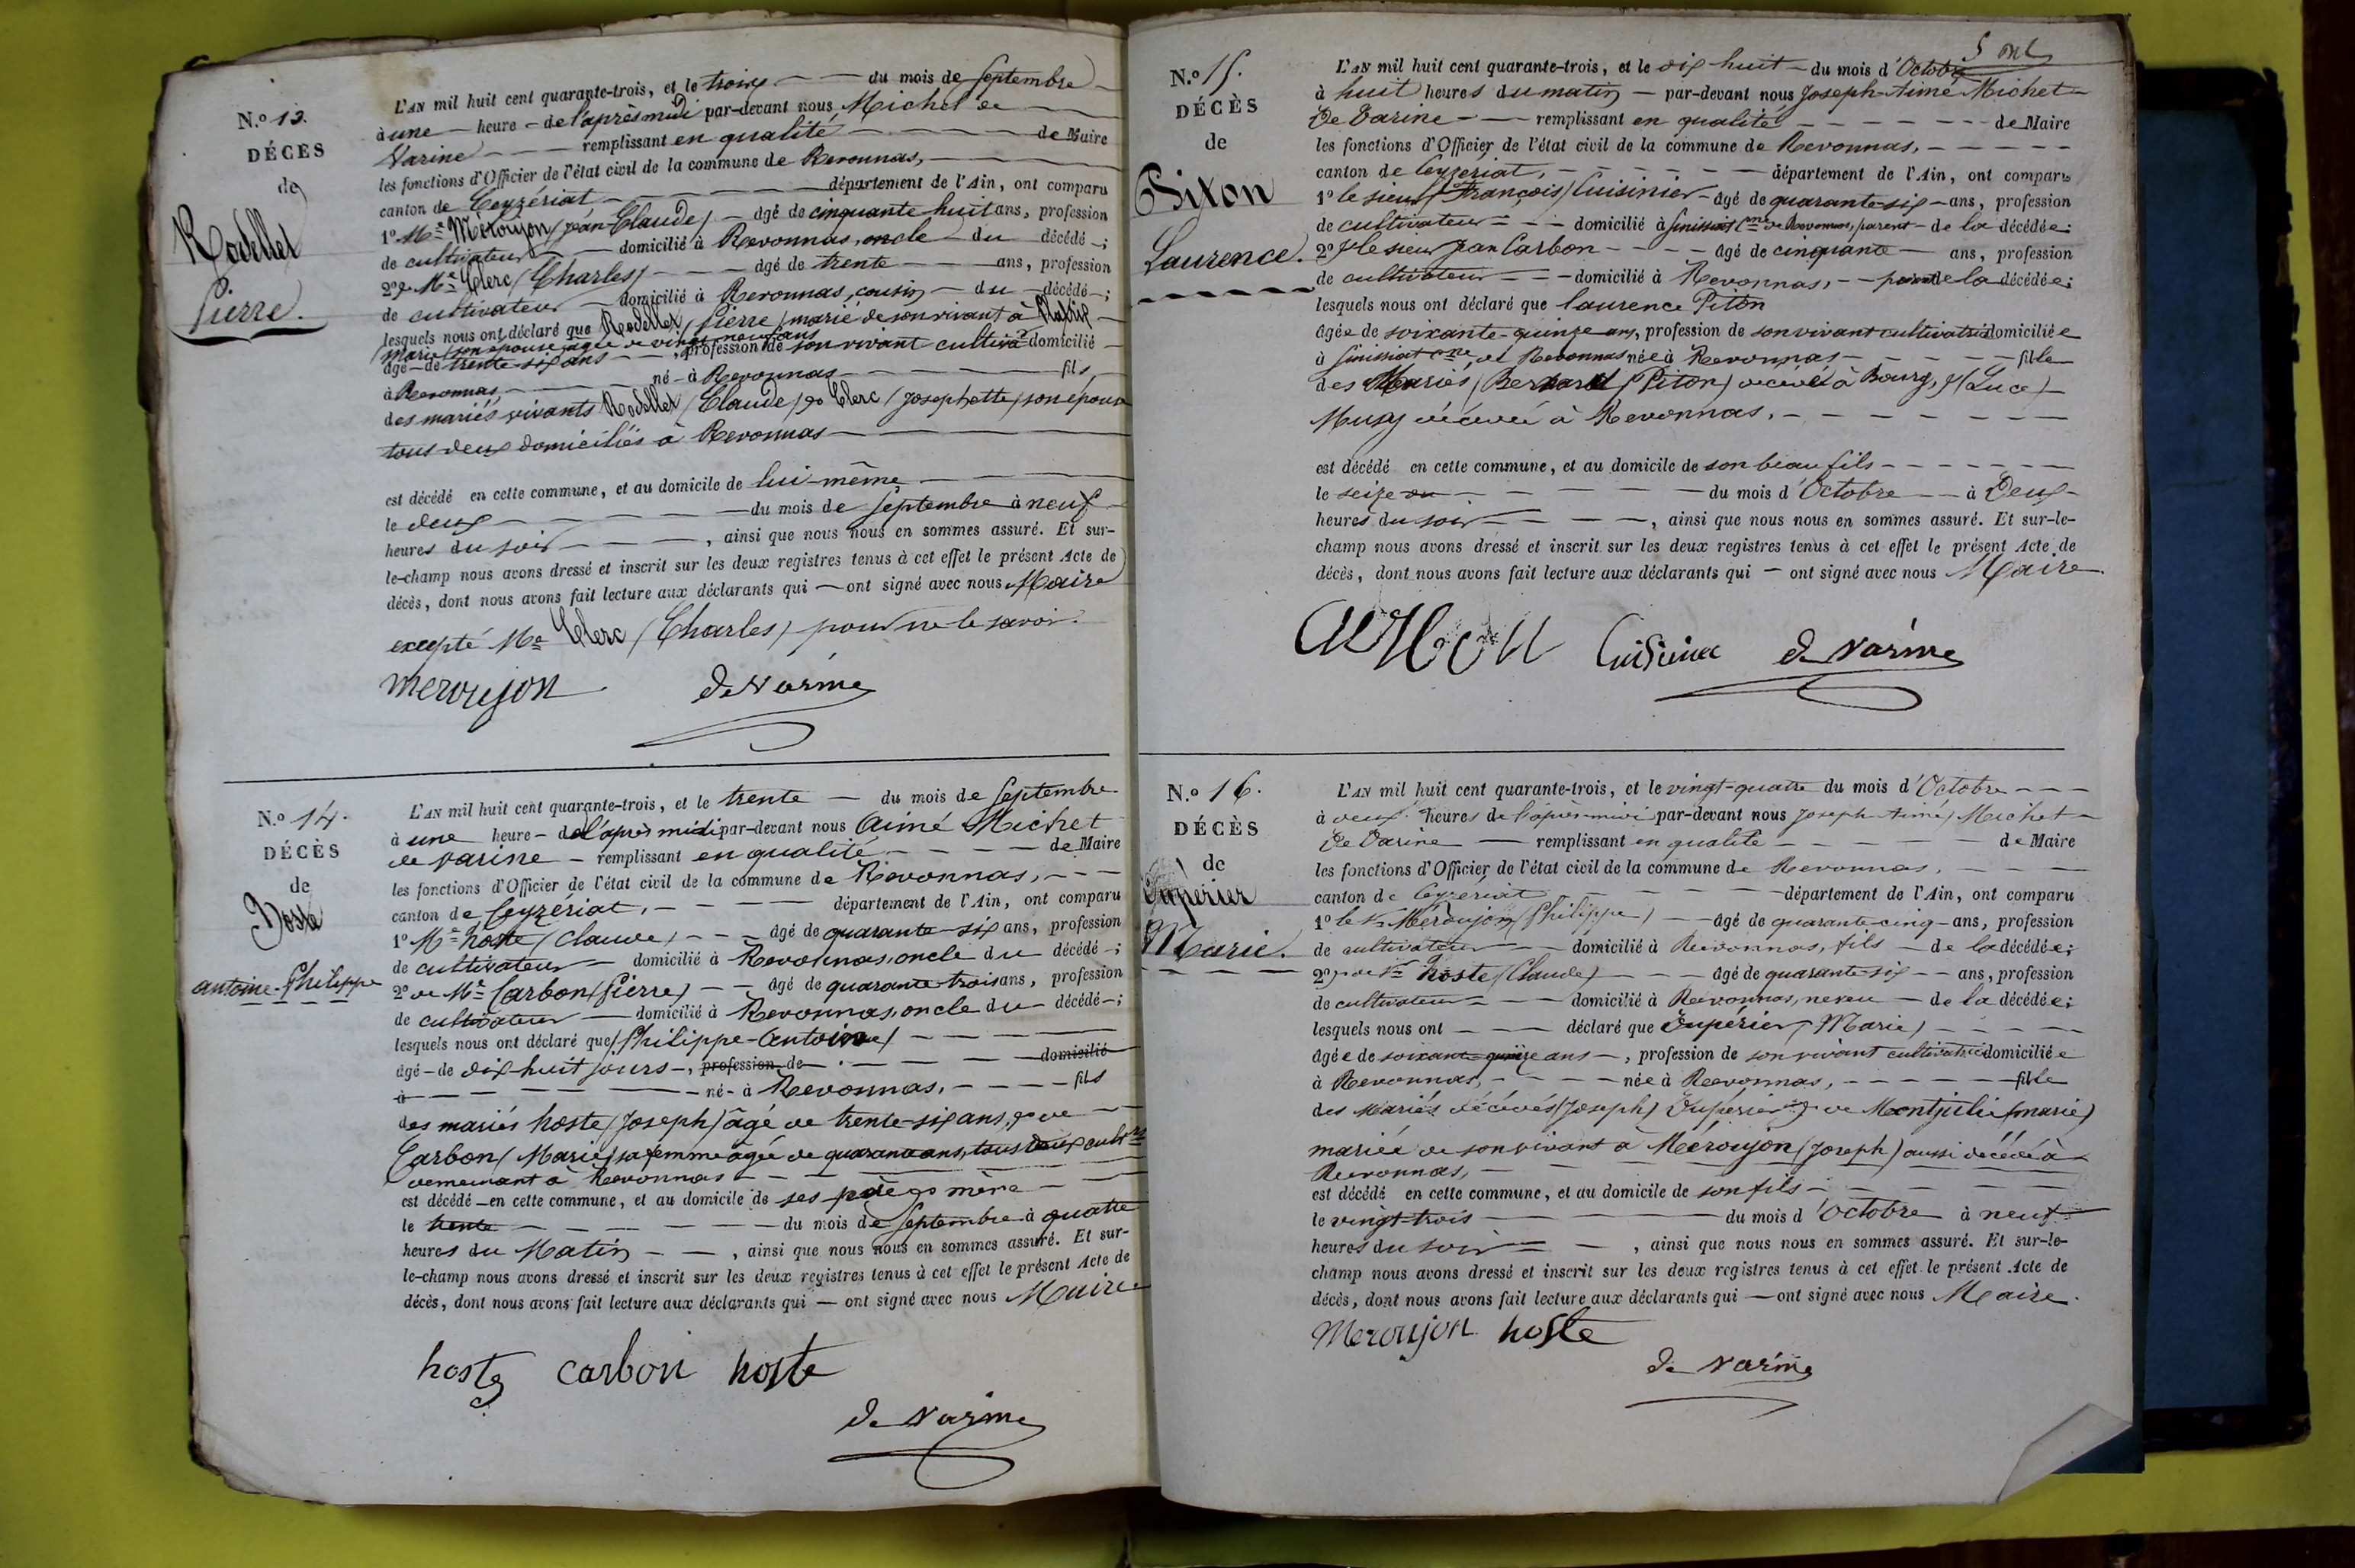 N.º 13.
DÉCÈS
de
Rodellet
Pierre.
L'AN mil huit cent quarante-trois, et le trois du mois de Septembre
à une heure de l'après midi par-devant nous Michet de
Varine remplissant en qualité de Maire
les fonctions d'Officier de l'état civil de la commune de Revonnas,
canton de Ceyzériat département de l'Ain, ont comparu
1º Mr Méroujon (Jean Claude) âgé de cinquante huit ans, profession
de cultivateur domicilié à Revonnas, oncle du décédé ;
2º & Mr Clerc (Charles) âgé de trente ans, profession
de cultivateur domicilié à Revonnas, cousin du décédé ;
lesquels nous ont déclaré que Rodellet (Pierre) marié de son vivant à
(Marie) son épouse agée de vingt neuf ans
âgé de trente six ans, profession de son vivant cultivr domicilié
à Revonnas, né à Revonnas fils
des mariés vivants Rodellet (Claude) & Clerc (Josephette) son épouse
tous deux domiciliés à Revonnas
est décédé en cette commune, et au domicile de lui-même
le deux du mois de Septembre à neuf
heures du soir, ainsi que nous nous en sommes assuré. Et sur-
le-champ nous avons dressé et inscrit sur les deux registres tenus à cet effet le présent Acte de
décès, dont nous avons fait lecture aux déclarants qui ont signé avec nous Maire
excepté Mr Clerc (Charles) pour ne le savoir.
meroujon de Varine
N.º 14.
DÉCÈS
de
hoste
antoine-Philippe
L'AN mil huit cent quarante-trois, et le trente du mois de Septembre
à une heure de l'après midi par-devant nous Aimé Michet
de Varine remplissant en qualité de Maire
les fonctions d'Officier de l'état civil de la commune de Revonnas,
canton de Ceyzériat, département de l'Ain, ont comparu
1º Mr hoste (Claude) âgé de quarante-six ans, profession
de cultivateur domicilié à Revonnas, oncle du décédé ;
2º de Mr Carbon (Pierre) âgé de quarante trois ans, profession
de cultivateur domicilié à Revonnas, oncle du décédé ;
lesquels nous ont déclaré que (Philippe-Antoine)
âgé de dix huit jours, profession de domicilié
à né à Revonnas, fils
des mariés hoste (Joseph) âgé de trente-six ans, & de
Carbon (Marie) sa femme agée de quarante ans, tous deux cultrs
demeurant à Revonnas
est décédé en cette commune, et au domicile de ses père & mère
le trente du mois de Septembre à quatre
heures du Matin, ainsi que nous nous en sommes assuré. Et sur-
le-champ nous avons dressé et inscrit sur les deux registres tenus à cet effet le présent Acte de
décès, dont nous avons fait lecture aux déclarants qui ont signé avec nous Maire
hoste carbon hoste
de Varine
N.º 15.
DÉCÈS
de
Piton
Laurence.
L'AN mil huit cent quarante-trois, et le dix huit du mois d'Octobre
à huit heures du matin par-devant nous Joseph-Aimé Michet
De Varine remplissant en qualité de Maire
les fonctions d'Officier de l'état civil de la commune de Revonnas,
canton de Ceyzériat, département de l'Ain, ont comparu
1º le sieur (François) Cuisinier âgé de quarante-six ans, profession
de cultivateur domicilié à Sénissiat Cne de Revonnas, parent de la décédée ;
2º & le sieur Jean Carbon âgé de cinquante ans, profession
de cultivateur domicilié à Revonnas, parent de la décédée ;
lesquels nous ont déclaré que Laurence Piton
âgée de soixante-quinze ans, profession de son vivant cultivatrice domiciliée
à Sénissiat cne de Revonnas née à Revonnas fille
des Mariés (Bernard) (Piton) décédé à Bourg, & (Luce)
Musy décédée à Revonnas,
est décédé en cette commune, et au domicile de son beau fils
le seize du mois d'Octobre à Deux
heures du soir, ainsi que nous nous en sommes assuré. Et sur-le-
champ nous avons dressé et inscrit sur les deux registres tenus à cet effet le présent Acte de
décès, dont nous avons fait lecture aux déclarants qui ont signé avec nous Maire.
Cuisinier de Varine
N.º 16.
DÉCÈS
de
Dupérier
Marie.
L'AN mil huit cent quarante-trois, et le vingt-quatre du mois d'Octobre
à deux heures de l'après-midi par-devant nous Joseph-Aimé Michet
De Varine remplissant en qualité de Maire
les fonctions d'Officier de l'état civil de la commune de Revonnas,
canton de Ceyzériat département de l'Ain, ont comparu
1º le Sr Méroujon (Philippe) âgé de quarante-cinq ans, profession
de cultivateur domicilié à Revonnas, fils de la décédée ;
2º & de Sr hoste (Claude) âgé de quarante-six ans, profession
de cultivateur domicilié à Revonnas, neveu de la décédée ;
lesquels nous ont déclaré que Dupérier (Marie)
âgée de soixante-quinze ans, profession de son vivant cultivatrice domiciliée
à Revonnas, née à Revonnas, fille
des Mariés décédés (Joseph) Dupérier & de Montjulin (marie)
mariée de son vivant à Méroujon (Joseph) aussi décédé à
Revonnas,
est décédé en cette commune, et au domicile de son fils
le vingt-trois du mois d'Octobre à neuf
heures du soir, ainsi que nous nous en sommes assuré. Et sur-le-
champ nous avons dressé et inscrit sur les deux registres tenus à cet effet le présent Acte de
décès, dont nous avons fait lecture aux déclarants qui ont signé avec nous Maire.
Meroujon hoste
de Varine